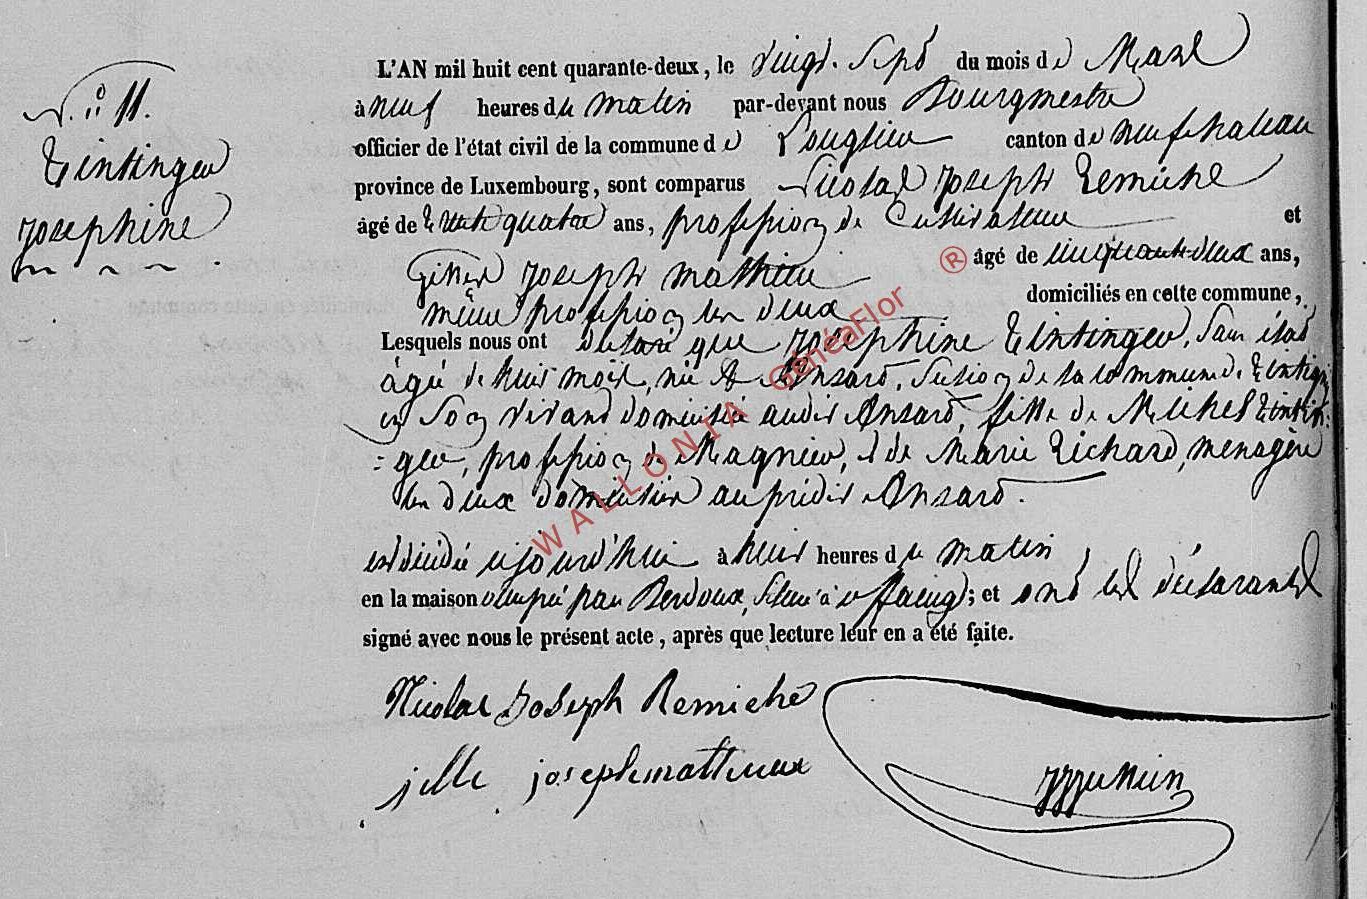 N.° 11.
Tintinger
Josephine
L'AN mil huit cent quarante-deux, le vingt-sept du mois de Mars
à neuf heures du matin par-devant nous Bourgmestre
officier de l'état civil de la commune de Longlier canton de neufchateau
province de Luxembourg, sont comparus Nicolas Joseph Remiche
âgé de trente quatre ans, profession de Cultivateur et
Gilles Joseph Mathieu âgé de cinquante-deux ans,
même profession les deux domiciliés en cette commune,
Lesquels nous ont declaré que Josephine Tintinger, Sans état
âgée de huit mois, née à Ansart, Section de la commune de Tintigny
en Son vivant domiciliée audit Ansart, fille de Michel Tintin-
=ger, profession de Magnier, et de Marie Richard, menagère
les deux domiciliés au prédit Ansart.
est décédée ajourd'hui à huit heures du matin
en la maison occupée par Berdoux, Située à offaing; et ont les déclarants
signé avec nous le présent acte, après que lecture leur en a été faite.
Nicolas Joseph Remiche
jille joseph mattieux
WALLONIA GénéaFlor ®